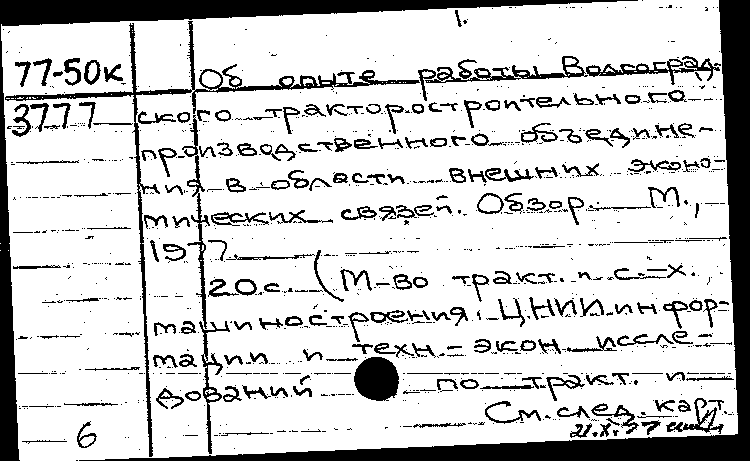 1.
77-50к Об опыте работы Волгоград-
3777 ского тракторостроительного
производственного объедине-
ния в области внешних эконо-
мических связей. Обзор. М.,
1977.
20с. (М-во тракт. и с.-х.
машиностроения. ЦНИИ инфор-
мации и техн.-экон. иссле-
дований по тракт. и
См. след. карт.
6 21.X.77